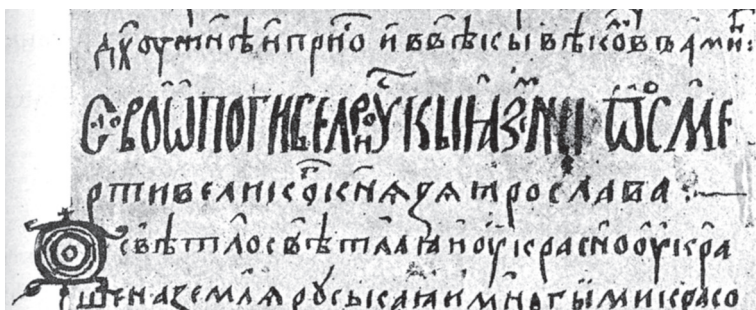 дх҃ѹ и нн҃ѣ и прн҃о и в вѣкы вѣкѡв амн҃:
Слово ѡ погибели рускыꙗ земли ѡ сме
рти великоⷢ кнѧзѧ ꙗрослава
Ѡ свѣтло свѣтлаꙗ и ѹкрасно ѹкра
шена землѧ руськаꙗ и многыми красо